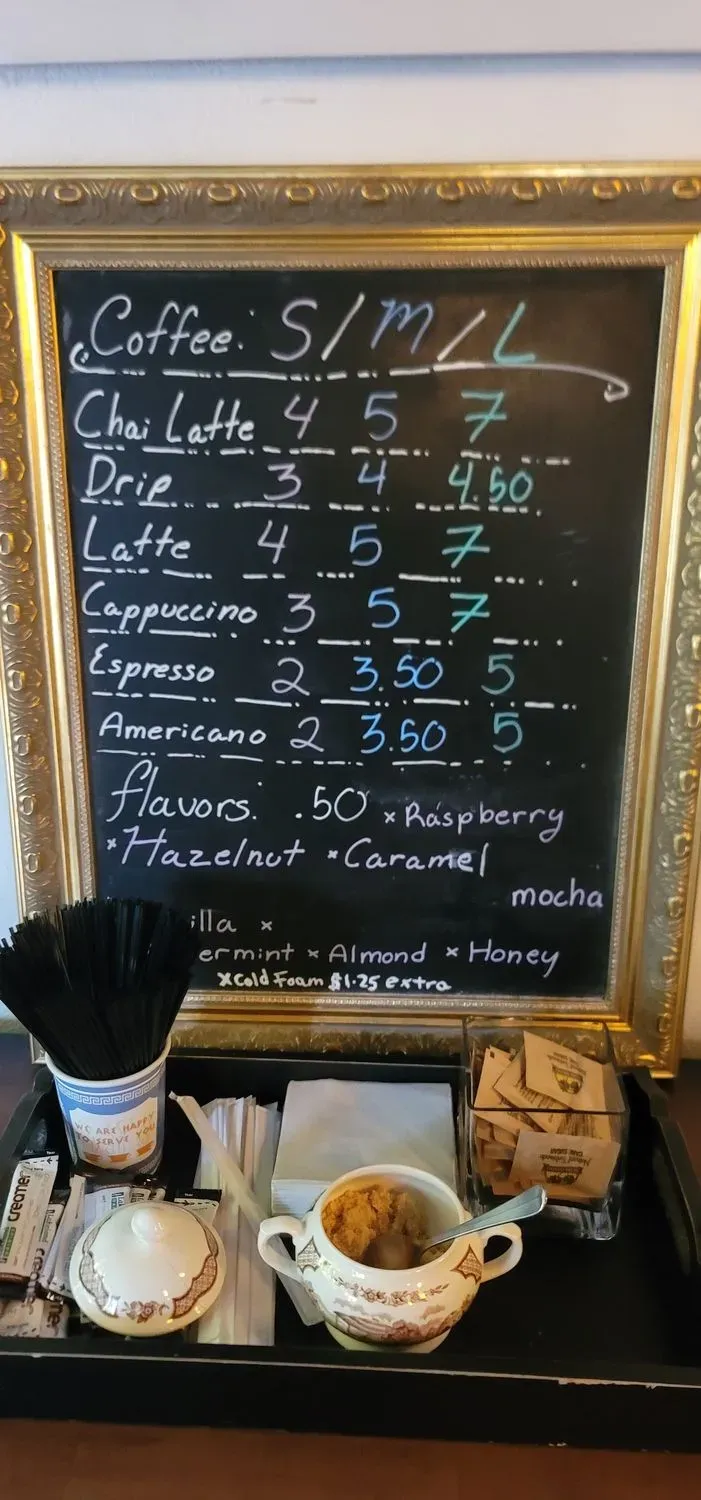 Coffee: S/M/L
Chai Latte 4 5 7
Drip 3 4 4.50
Latte 4 5 7
Cappuccino 3 5 7
Espresso 2 3.50 5
Americano 2 3.50 5
flavors: .50 × Raspberry
× Hazelnut × Caramel
mocha
illa ×
ermint × Almond × Honey
× Cold Foam $1.25 extra
WE ARE HAPPY
TO SERVE YOU
creamer